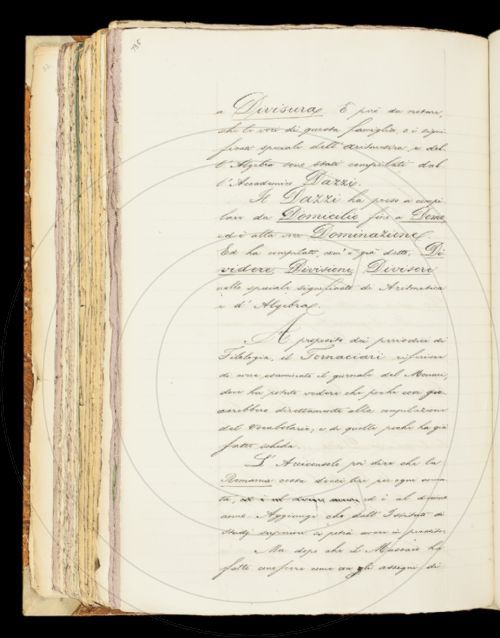 a Divisura. È poi da notare,
che le voci di questa famiglia, e i signi-
ficati speciali dell'Aritmetica, e del-
l'Algebra sono stati compilati dal-
l'Accademico Dazzi.
Il Dazzi ha preso a compi-
lare da Domicilio fino a Dono
ed è alla voce Dominazione.
Ed ha compilato, com'è già detto, Di-
videre, Divisione, Divisore
nello speciale significato di Aritmetica
e d'Algebra.
A proposito dei periodici di
Filologia, il Tornaciari riferisce
di avere esaminato il giornale del Monaci,
dove ha potuto vedere che poche cose gio-
varebbero direttamente alla compilazione
del Vocabolario; e di quelle poche ha già
fatto scheda.
L'Arciconsolo poi dice che la
Romania costa dieci lire per ogni
anno. Aggiunge che dall'Istituto di
Studj superiori si potrà avere in prestito.
Ma dopo che il Massaio ha
fatto conoscere come con gli assegni di